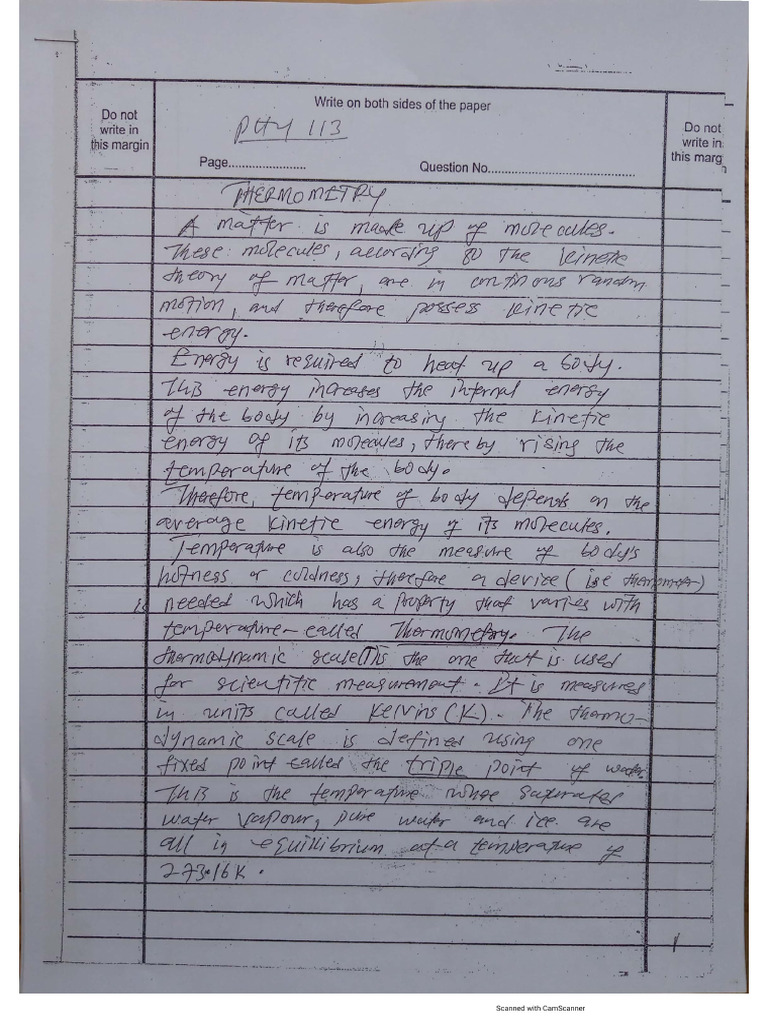 Write on both sides of the paper
Do not
write in
this margin
PHY 113
Do not
write in
this marg
Page......................
Question No.....................................
THERMOMETRY
A matter is made up of molecules.
These molecules, according to the kinetic
theory of matter, are in continous random
motion, and therefore possess kinetic
energy.
Energy is required to heat up a body.
This energy increases the internal energy
of the body by increasing the kinetic
energy of its molecules, thereby rising the
temperature of the body.
Therefore, temperature of body depends on the
average kinetic energy of its molecules.
Temperature is also the measure of body's
hotness or coldness, therefore a device (i.e thermometer)
is needed which has a property that varies with
temperature - called Thermometry. The
thermodynamic scale (T) is the one that is used
for scientific measurement. It is measured
in units called Kelvins (K). The thermo-
dynamic scale is defined using one
fixed point called the triple point of water.
This is the temperature whose saturated
water vapour, pure water and ice are
all in equilibrium at a temperature of
273.16K.
Scanned with CamScanner